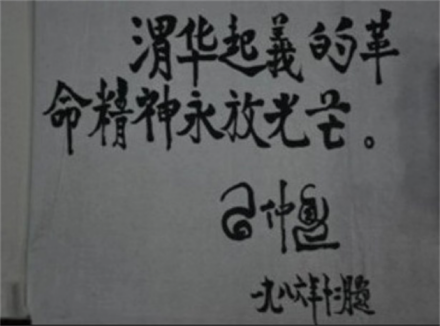 渭华起義的革
命精神永放光芒。
仲
一九八六年十二月題